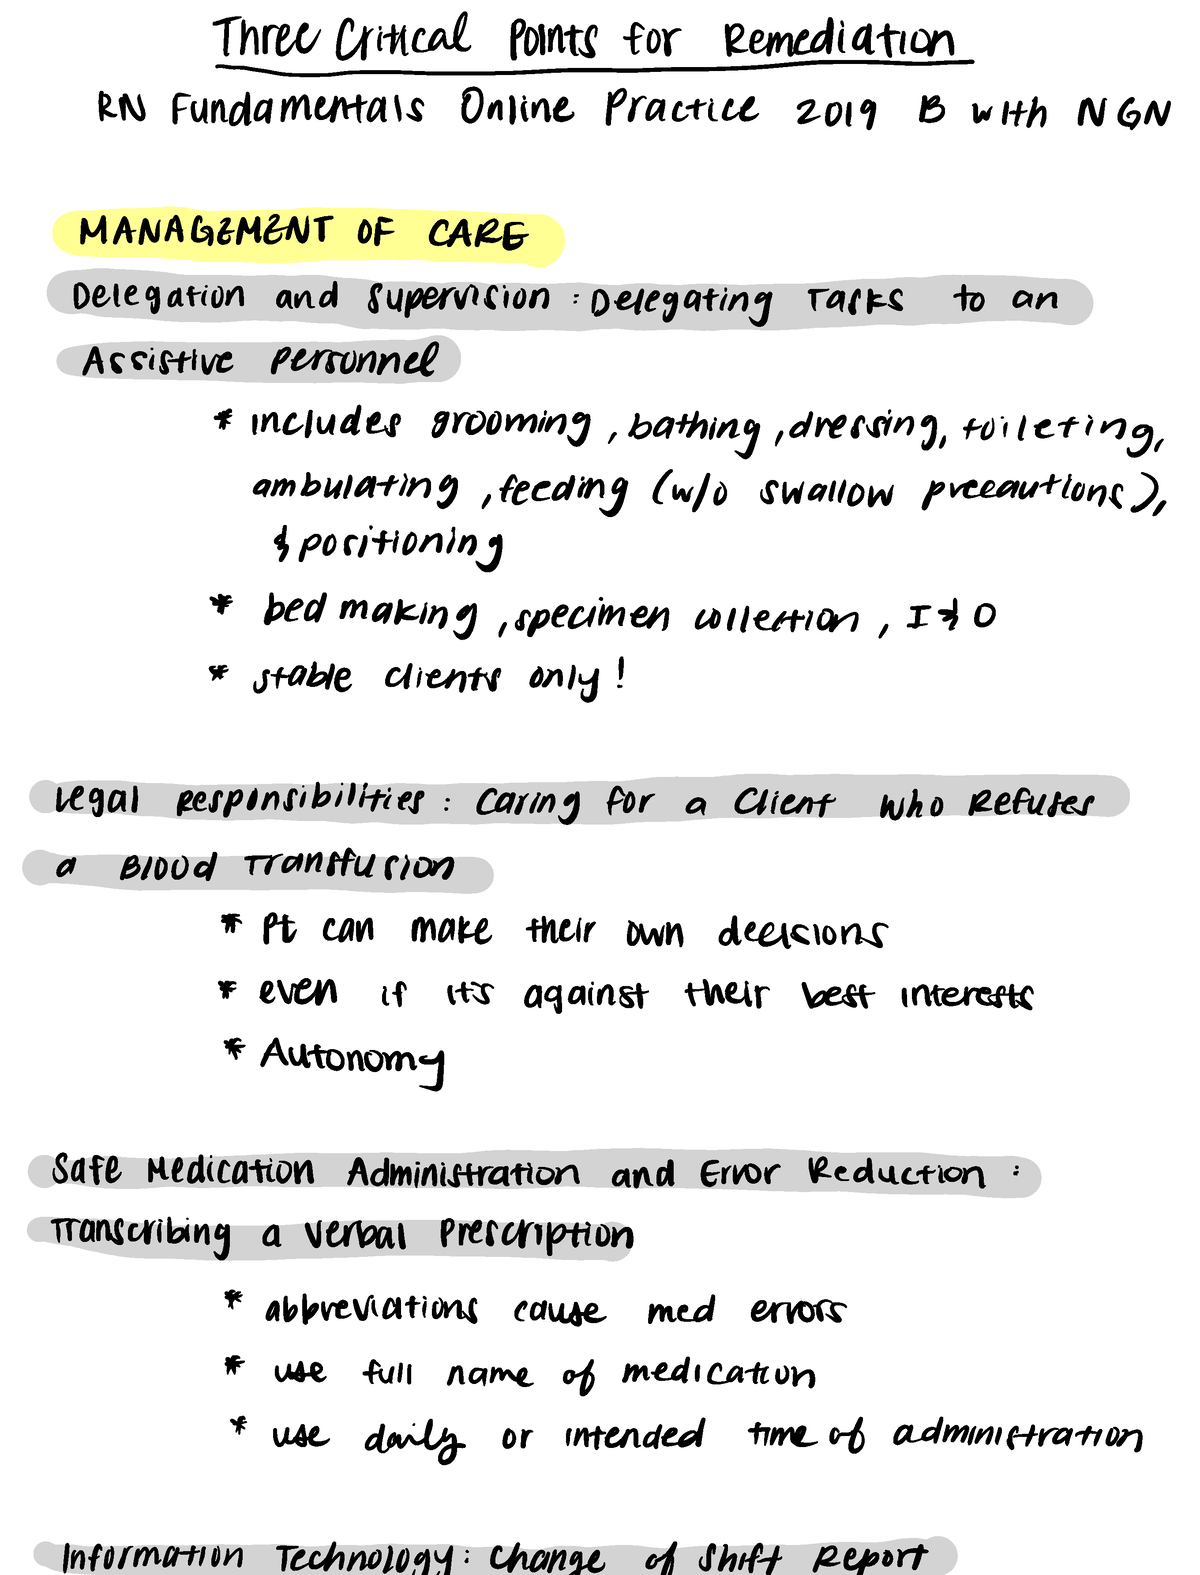 Three Critical Points for Remediation
RN Fundamentals Online Practice 2019 B with NGN
MANAGEMENT OF CARE
Delegation and Supervision: Delegating Tasks to an
Assistive Personnel
* includes grooming, bathing, dressing, toileting,
ambulating, feeding (w/o swallow precautions),
& positioning
* bed making, specimen collection, I & O
* stable clients only!
Legal Responsibilities: Caring for a Client Who Refuses
a Blood Transfusion
* Pt can make their own decisions
* even if it's against their best interests
* Autonomy
Safe Medication Administration and Error Reduction:
Transcribing a Verbal Prescription
* abbreviations cause med errors
* use full name of medication
* use daily or intended time of administration
Information Technology: Change of Shift Report